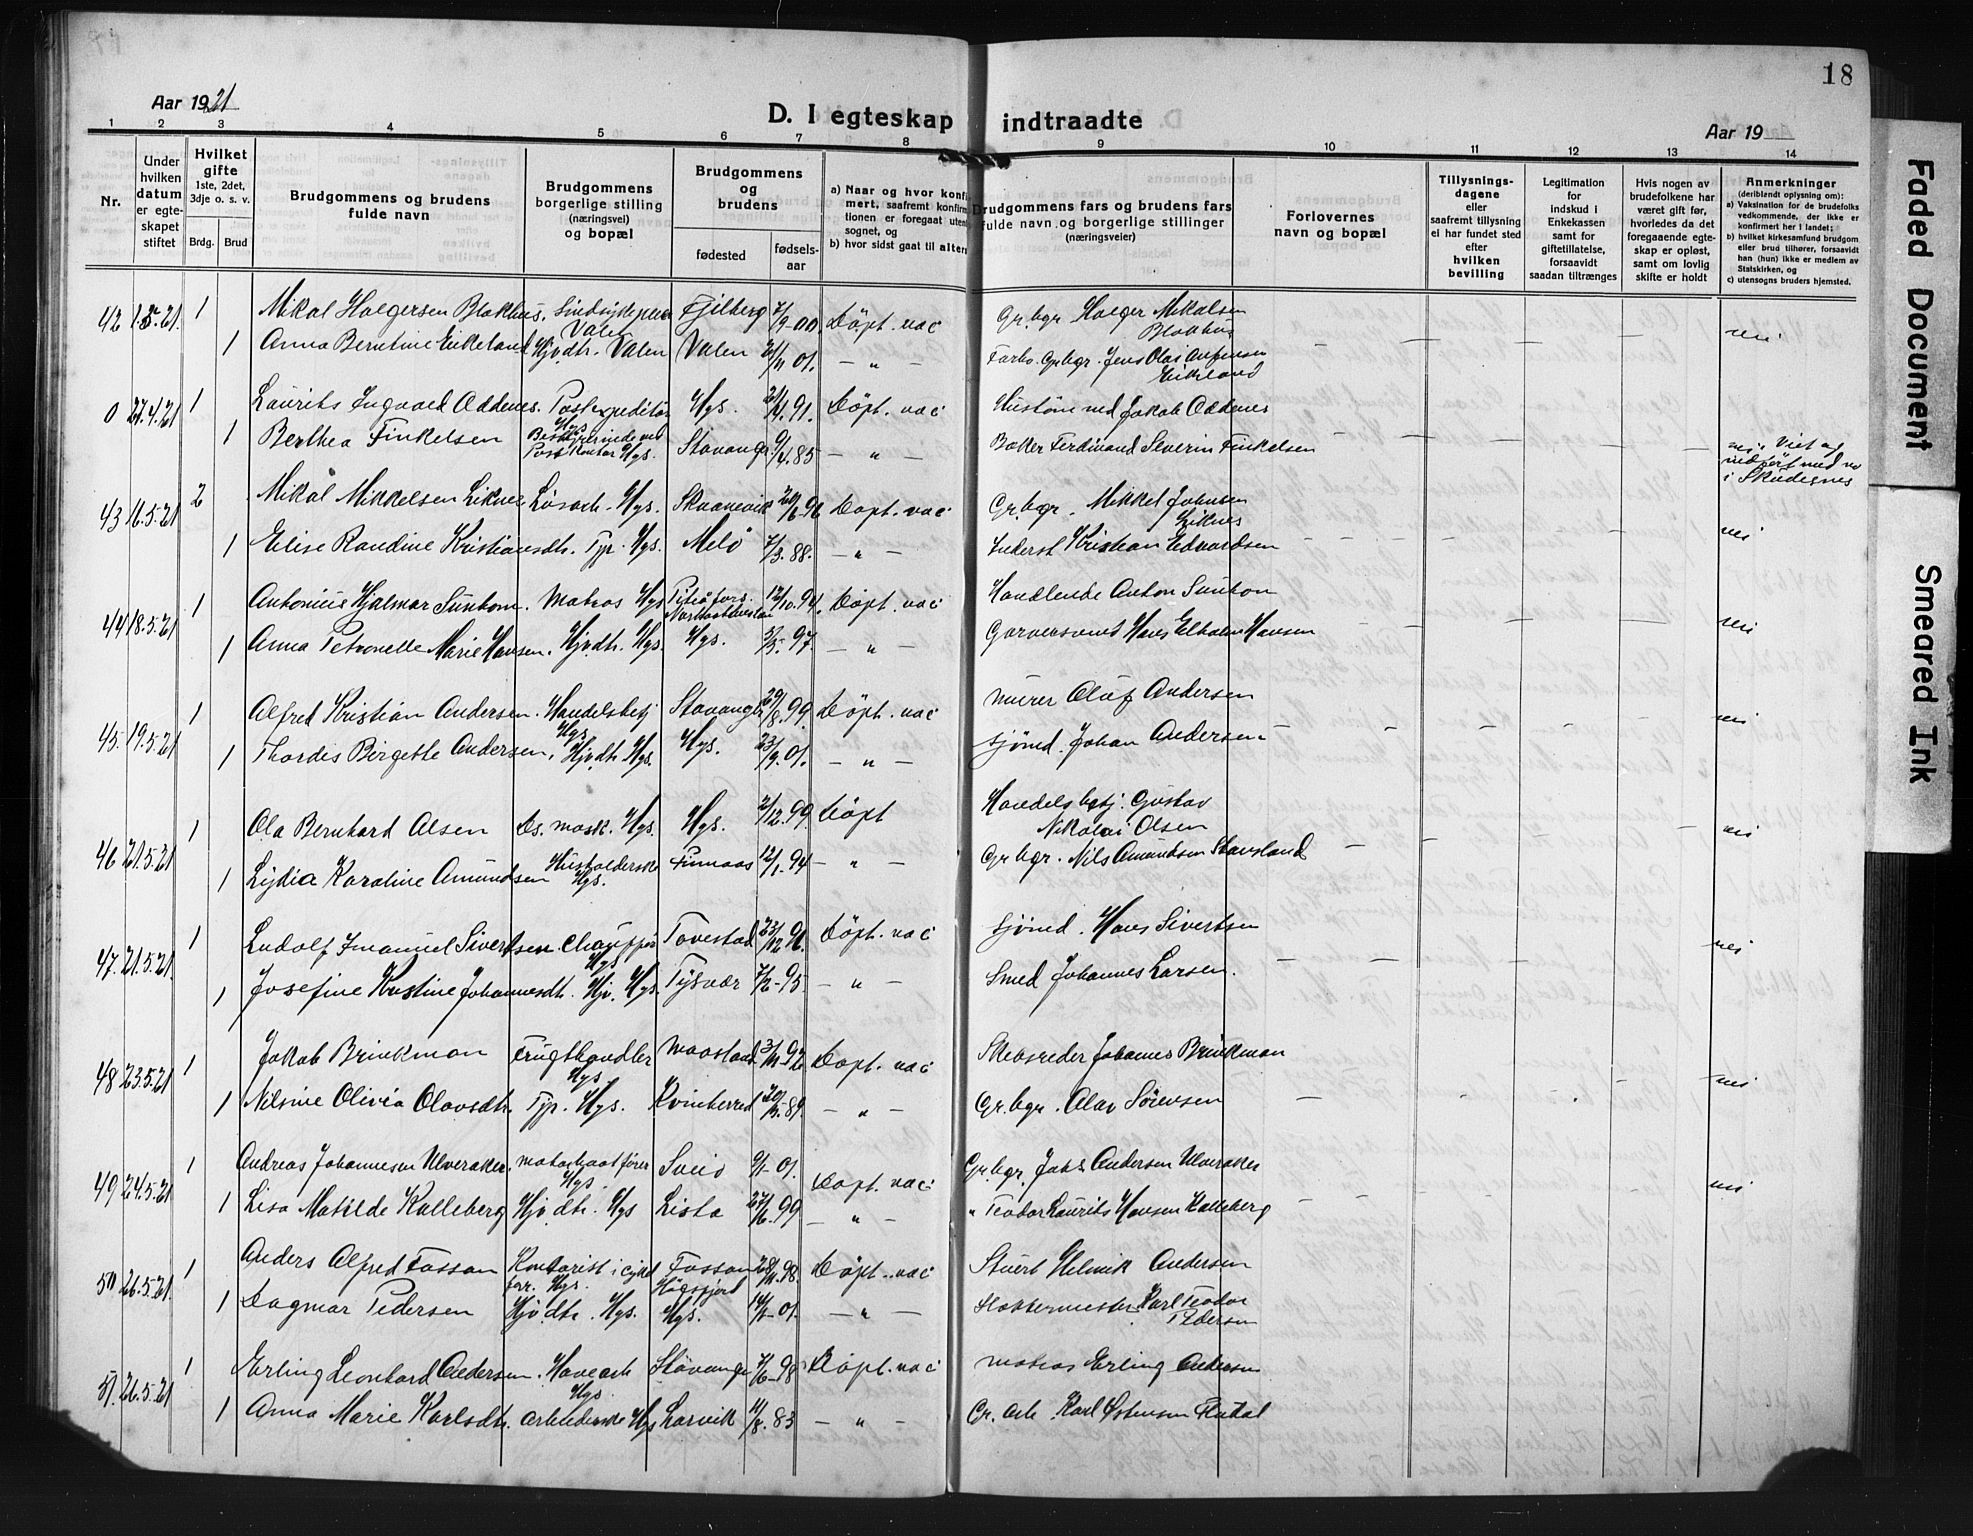 18
Aar 1921
D. I egteskap indtraadte
Aar 19
1 2 3 4 5 6 7 8 9 10 11 12 13 14
Nr.
Under hvilken datum er egteskapet stiftet
Hvilket gifte 1ste, 2det, 3dje o. s. v.
Brdg. Brud
Brudgommens og brudens fulde navn
Brudgommens borgerlige stilling (næringsvei) og bopæl
Brudgommens og brudens
fødested
fødselsaar
a) Naar og hvor konfirmert, saafremt konfirmationen er foregaat utensognet, og
b) hvor sidst gaat til alters
Brudgommens fars og brudens fars fulde navn og borgerlige stillinger (næringsveier)
Forlovernes navn og bopæl
Tillysningsdagene eller saafremt tillysning ei har fundet sted efter hvilken bevilling
Legitimation for indskud i Enkekassen samt for giftetillatelse, forsaavidt saadan tiltrænges
Hvis nogen av brudefolkene har været gift før, hvorledes da det foregaaende egteskap er opløst, samt om lovlig skifte er holdt
Anmerkninger (deriblandt oplysning om):
a) Vaksination for de brudefolks vedkommende, der ikke er konfirmert her i landet;
b) hvilket kirkesamfund brudgom eller brud tilhører, forsaavidt han (hun) ikke er medlem av Statskirken, og
c) utensogns bruders hjemsted.
42 1 Mikal Holgersen Blokhus. Valen Fjelberg 7/9-00 Döpt. vac Gr.bgr Holger Mikalsen Blokhus nei
1 Anna Berntine Eikeland Hjv.dtr. Valen Valen 01. — " — Forbr. Gr.bgr. Jens Olai Eikeland
0 27.4.21 1 Laurits Ingvald Oddenes. Postexpeditör Hgs. Hgs. 91. Döpt. vac Jakob Oddenes
1 Berthea Finkelsen Bestyrerinde ved Postkontor Hgs. Stavanger 9/4.85 — " — Baker Ferdinand Severin Finkelsen nei. Viet og indført med no i Skudesnes
43 16.5.21 2 Mikal Mikkelsen Liknes Lösarb. Hgs. Skaanevik 20/6-96 Döpt. vac Gr.bgr. Mikkel Johnsen Liknes
1 Elise Randine Kristiansdtr. Tjp. Hgs. Melö 7/3.88. — " — Inderst Kristian Edvardsen nei
44 18.5.21 1 Antonius Hjalmar Sunbom. Matros Hgs 12/10.94. Döpt. vac Handlende Anton Sunbom
1 Anna Petronelle Marie Hansen. Hjv.dtr. Hgs. Hgs. 97. — " — Garversvend Hans Hansen nei
45. 19.5.21 1 Alfred Kristian Andersen. Handelsbetj Hgs. Stavanger 29/8.99. Döpt. vac Murer Oluf Andersen
1 Thordis Birgette Andersen. Hjv.dtr. Hgs. Hgs. 23/9.01. — " — Sjömd. Johan Andersen nei
46 21.5.21 1 Ola Bernhard Olsen Ds. mask. Hgs. Hgs. 2/12.99. Döpt Handelsbstj. Gustav Nikolai Olsen nei
1 Lydia Karoline Amundsen Husholderske Hgs. Finnaas 12/1.94 — " — Gr.bgr. Nils Amundsen Stavsland
47. 21.5.21. 1 Ludolf Imanuel Sivertsen. Chauffør Hgs Torvestad 23/12.96. Döpt. vac Sjömd. Hans Sivertsen nei
1 Josefine Kristine Johannesdtr. Hjv. Hgs. Tysvær 7/2-95. — " — Smed Johannes Larsen.
48 23.5.21 1 Jakob Brinkman Frugthandler Hgs. 92 Döpt. vac Skibsreder Johannes Brinkman
1 Nilsine Olivia Olavsdtr. Tjp. Hgs. Kvinherred 89. — " — Gr.bgr. Olav Sörensen nei
49 24.5.21 1 Andreas Johannesen Ulveraker. Motorbaatfører Hgs. Sveio 9/1-01. Döpt. vac Gr.bgr. Johs Andersen Ulveraker
1 Lisa Matilde Kalleberg Hjv.dtr. Hgs Lista 27/6-99 — " — " Teodor Laurits Hansen Kalleberg nei
50 26.5.21. 1 Anders Alfred Fossan Kontorist i Hgs. Fossan Högsfjord 98. Döpt. vac Stuert Helmik Andersen
1 Dagmar Pedersen Hjv.dtr. Hgs. Hgs. 01. — " — Slaktermester Karl Teodor Pedersen
51. 26.5.21 1 Erling Leonhard Andersen. Havearb Hgs. Stavanger 7/6-98 Döpt. vac Matros Erling Andersen
1 Anna Marie Karlsdtr. Arbeiderske Hgs Larvik 83 — " — Gr. arb. Karl Østensen
Faded Document
Smeared Ink